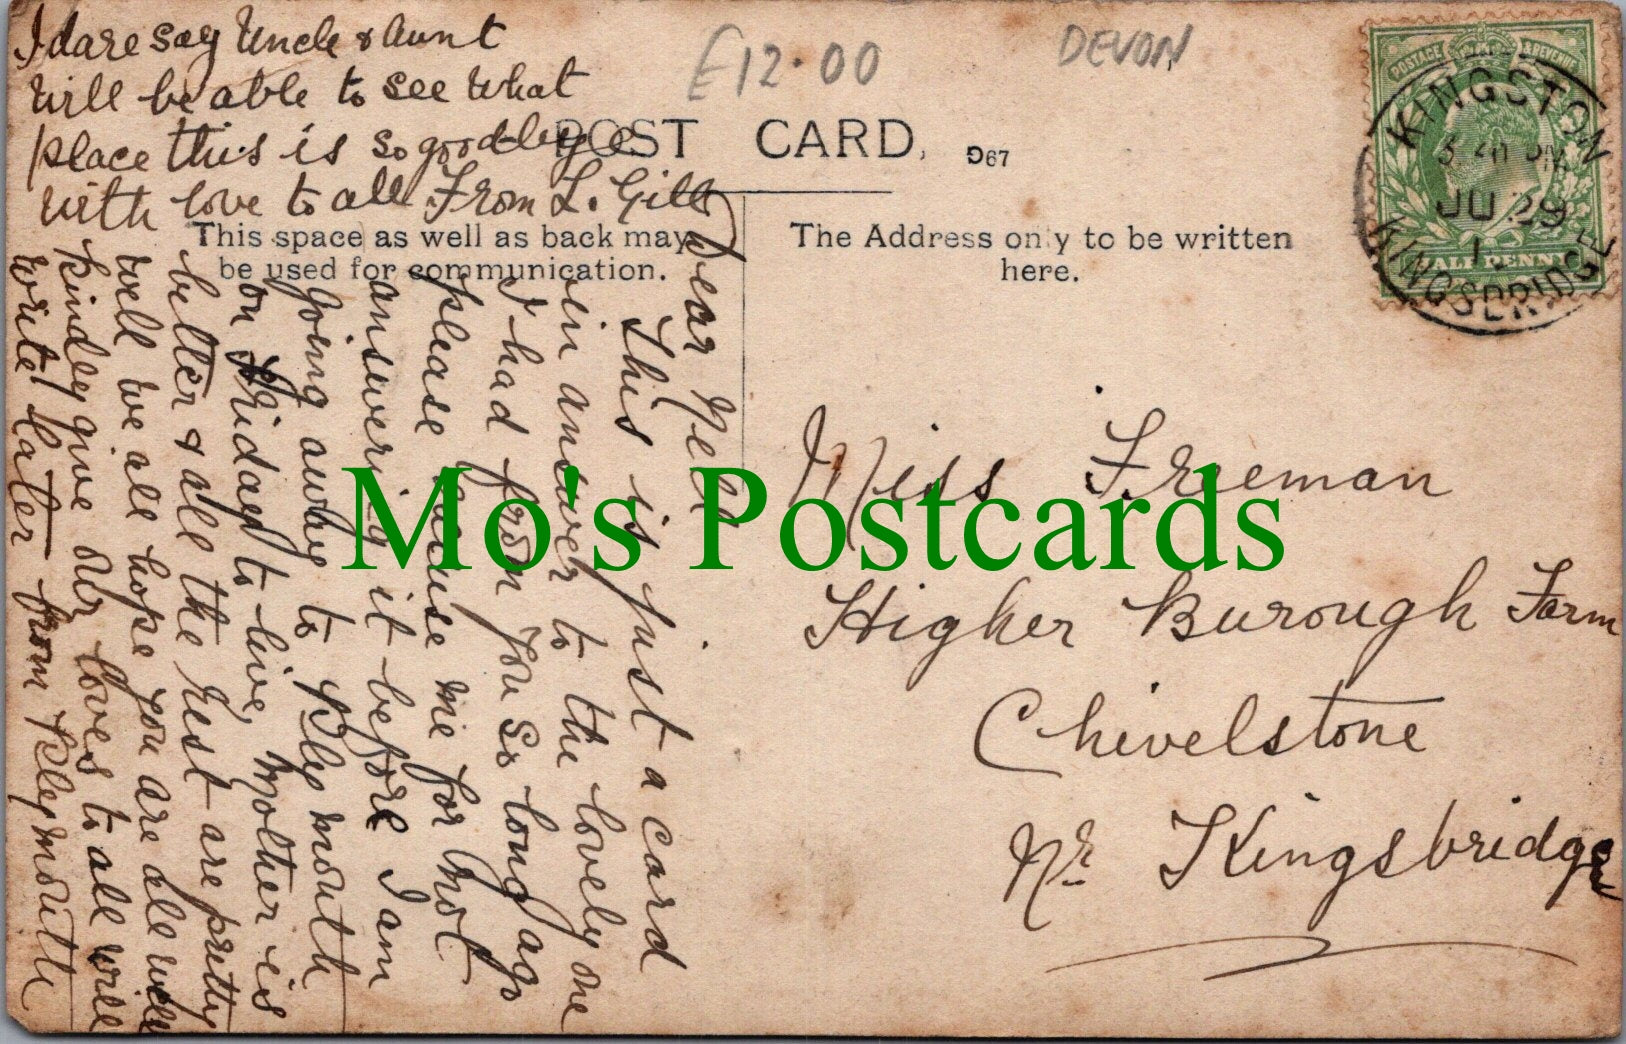 I dare say Uncle & Aunt
will be able to see what
place this is so goodbye
with love to all From L. Gill
£12.00
DEVON
POST CARD.
D67
This space as well as back may
be used for communication.
The Address only to be written
here.
POSTAGE & REVENUE
HALF PENNY
KINGSTON
3.40 PM
JU 29
1
KINGSBRIDGE
Dear Nell
This is just a card
in answer to the lovely one
I had from you so long ago
please excuse me for not
answering it before I am
going away to Plymouth
on Friday to live, Mother is
better & all the rest are pretty
well we all hope you are all well
kindly give our loves to all will
write later from Plymouth
Miss Freeman
Higher Burough Farm
Chivelstone
Nr Kingsbridge
Mo's Postcards